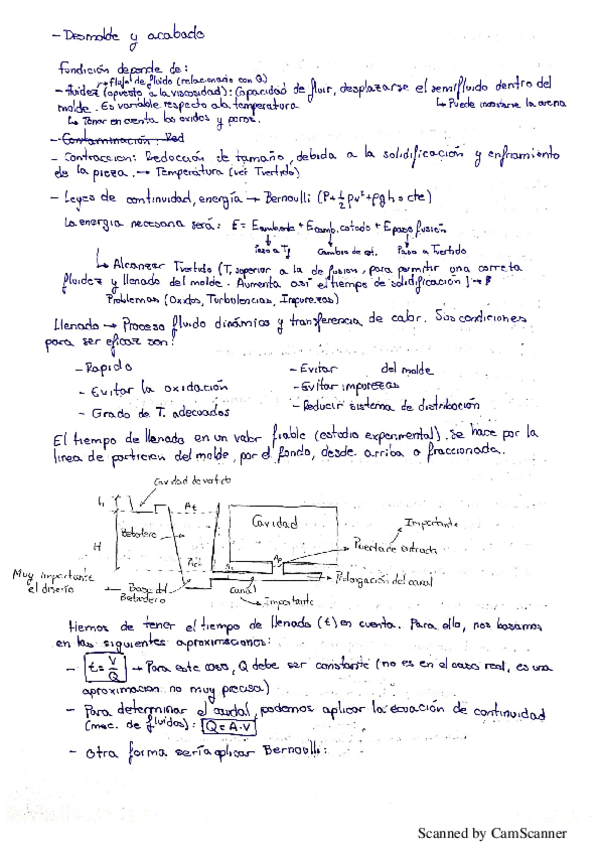 - Desmolde y acabado
Fundición depende de:
↳ flujo de fluido (relacionado con Q)
- fluidez (opuesto a la viscosidad): Capacidad de fluir, desplazarse el semifluido dentro del
molde. Es variable respecto a la temperatura ↳ Puede incrustarse la arena
↳ Tener en cuenta los óxidos y poros.
- Contaminación: Red
- Contraccion: Reducción de tamaño, debida a la solidificación y enfriamiento
de la pieza. → Temperatura (ver Tvertido)
- Leyes de continuidad, energía → Bernoulli (P+½ρv²+ρgh = cte)
La energia necesaria será: E = Ecamb.estado + Epaso fusión
Paso a Tf Cambio de est. Paso a Tvertido
↳ Alcanzar Tvertido (T, superior a la de fusion, para permitir una correta
fluidez y llenado del molde. Aumenta así el tiempo de solidificación)
Problemas (Oxidos, Turbolencias, Impurezas)
Llenado → Proceso fluido dinámico y transferencia de calor. Sus condiciones
para ser eficaz son:
- Rapido - Evitar del molde
- Evitar la oxidación - Evitar impurezas
- Grado de T. adecuados - Reducir sistema de distribución
El tiempo de llenado en un valor fiable (estudio experimental). se hace por la
linea de particion del molde, por el fondo, desde arriba o fraccionada.
Cavidad de vertido
At
Cavidad
Importante
Bebedero
H
Puerta de entrada
Muy importante
el diseño
Base del
Bebedero
Canal
Prolongación del canal
Importante
Hemos de tener el tiempo de llenado (t) en cuenta. Para ello, nos basamos
en las siguientes aproximaciones:
- t = V/Q → Para este caso, Q debe ser constante (no es en el caso real, es una
aproximacion no muy precisa)
- Para determinar el caudal, podemos aplicar la ecuación de continuidad
(mec. de fluidos): Q = A·V
- Otra forma sería aplicar Bernoulli:
Scanned by CamScanner